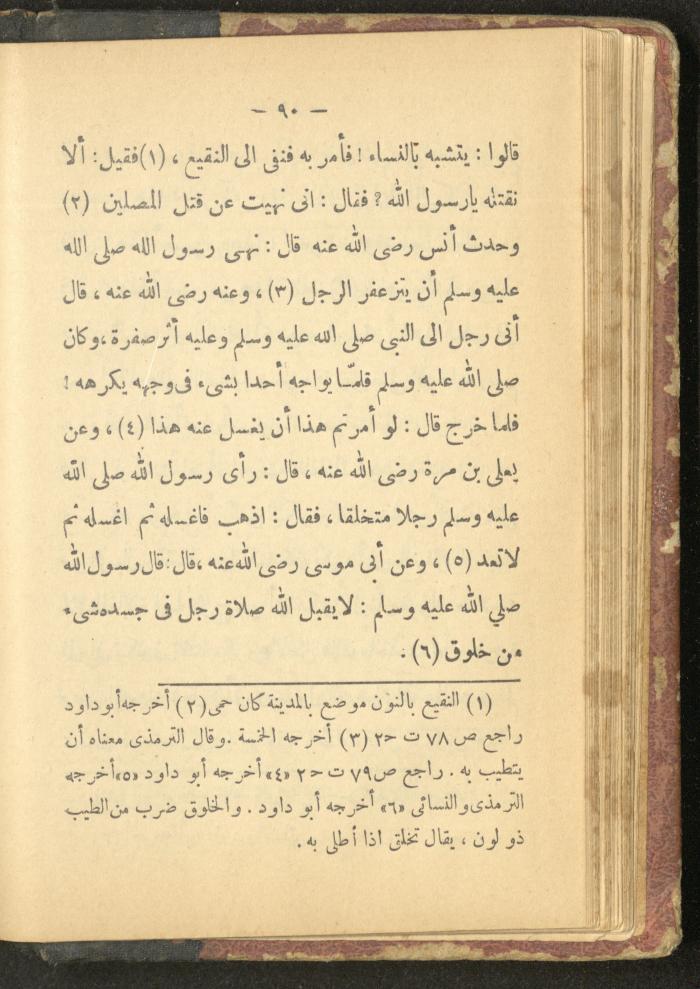 — ٩٠ —
قالوا : يتشبه بالنساء ! فأمر به فنفى الى النقيع ، (١) فقيل : ألا
نقتله يارسول الله ؟ فقال : انى نهيت عن قتل المصلين (٢)
وحدث أنس رضى الله عنه قال : نهى رسول الله صلى الله
عليه وسلم أن يتزعفر الرجل (٣) ، وعنه رضى الله عنه ، قال
أتى رجل الى النبى صلى الله عليه وسلم وعليه أثر صفرة ، وكان
صلى الله عليه وسلم قلمّا يواجه أحدا بشىء فى وجهه يكرهه !
فلما خرج قال : لو أمرتم هذا أن يغسل عنه هذا (٤) ، وعن
يعلى بن مرة رضى الله عنه ، قال : رأى رسول الله صلى الله
عليه وسلم رجلا متخلقا ، فقال : اذهب فاغسله ثم اغسله ثم
لا تعد (٥) ، وعن أبي موسى رضى الله عنه ، قال : قال رسول الله
صلي الله عليه وسلم : لا يقبل الله صلاة رجل فى جسده شىء
من خلوق (٦) .
(١) النقيع بالنون موضع بالمدينة كان حمى (٢) أخرجه أبو داود
راجع ص ٧٨ ت ح٢ (٣) أخرجه الخمسة . وقال الترمذى معناه أن
يتطيب به . راجع ص ٧٩ ت ح٢ «٤» أخرجه أبو داود «٥» أخرجه
الترمذى والنسائى «٦» أخرجه أبو داود . والخلوق ضرب من الطيب
ذو لون ، يقال تخلق اذا أطلى به .